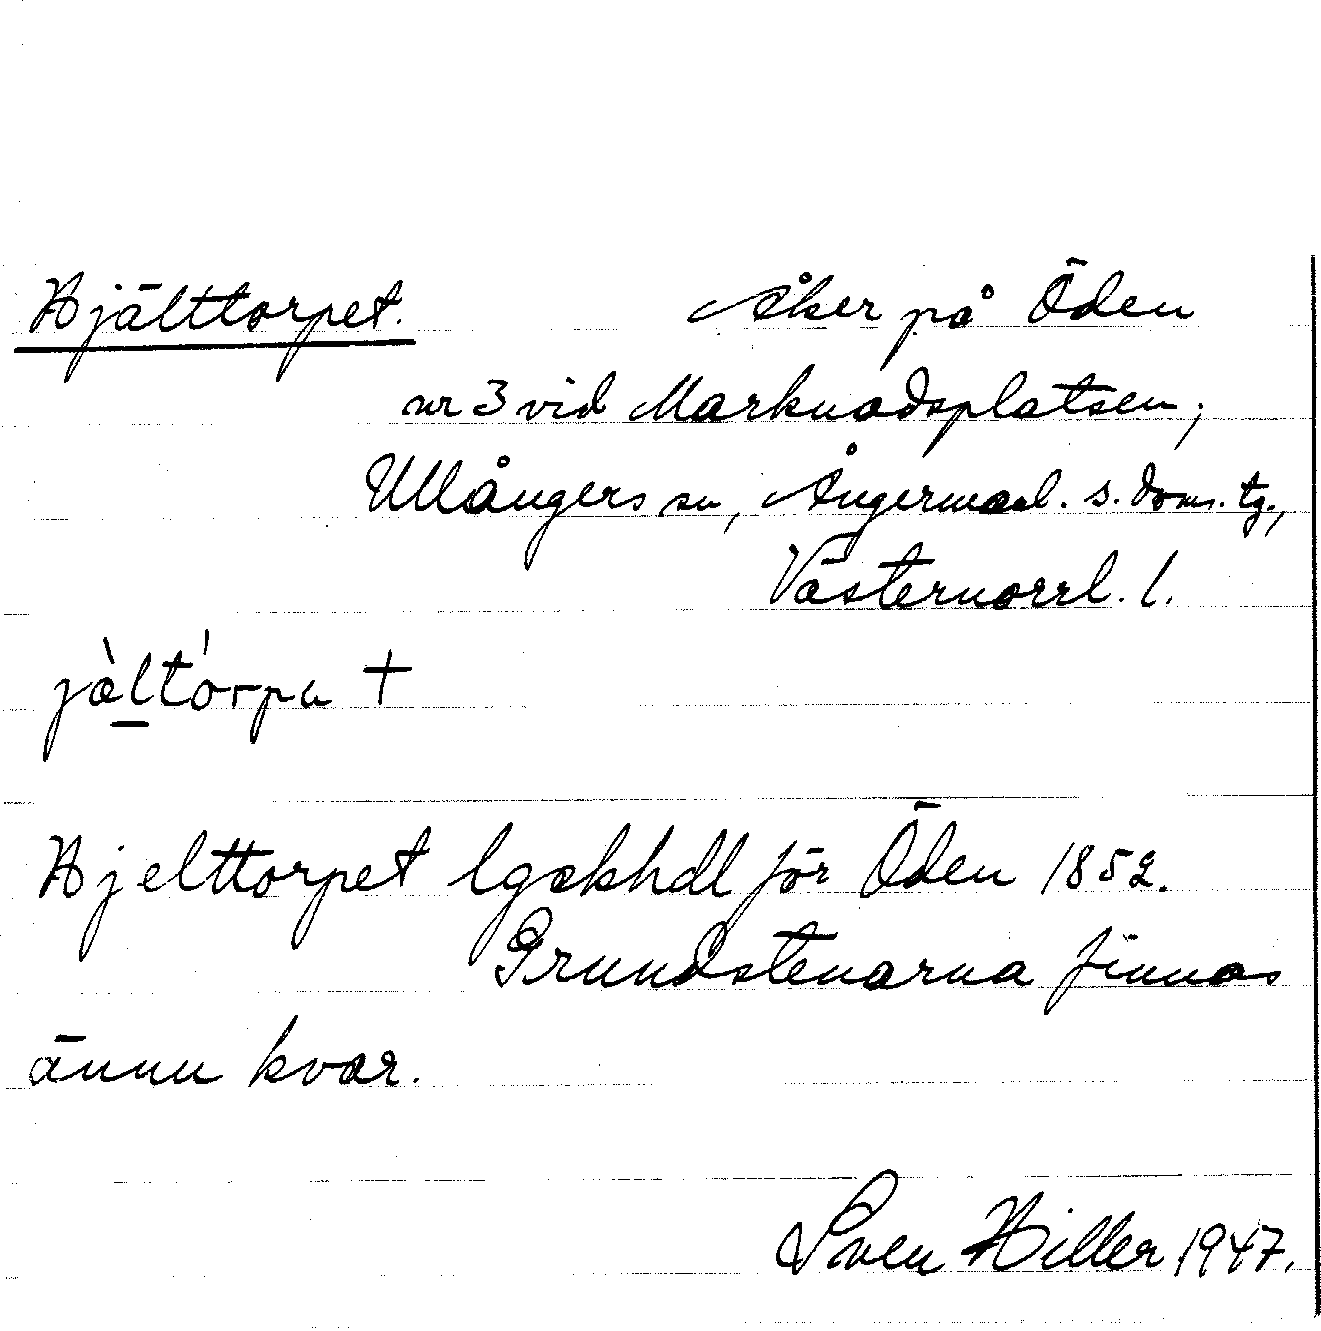 Hjälttorpet. Åker på Öden
nr 3 vid Marknadsplatsen;
Ullångers sn, Ångermanl. s. doms. tg.,
Västernorrl. l.
jàltórpa +
Hjelttorpet lgskhdl för Öden 1852.
Grundstenarna finnas
ännu kvar.
Sven Hiller 1947.